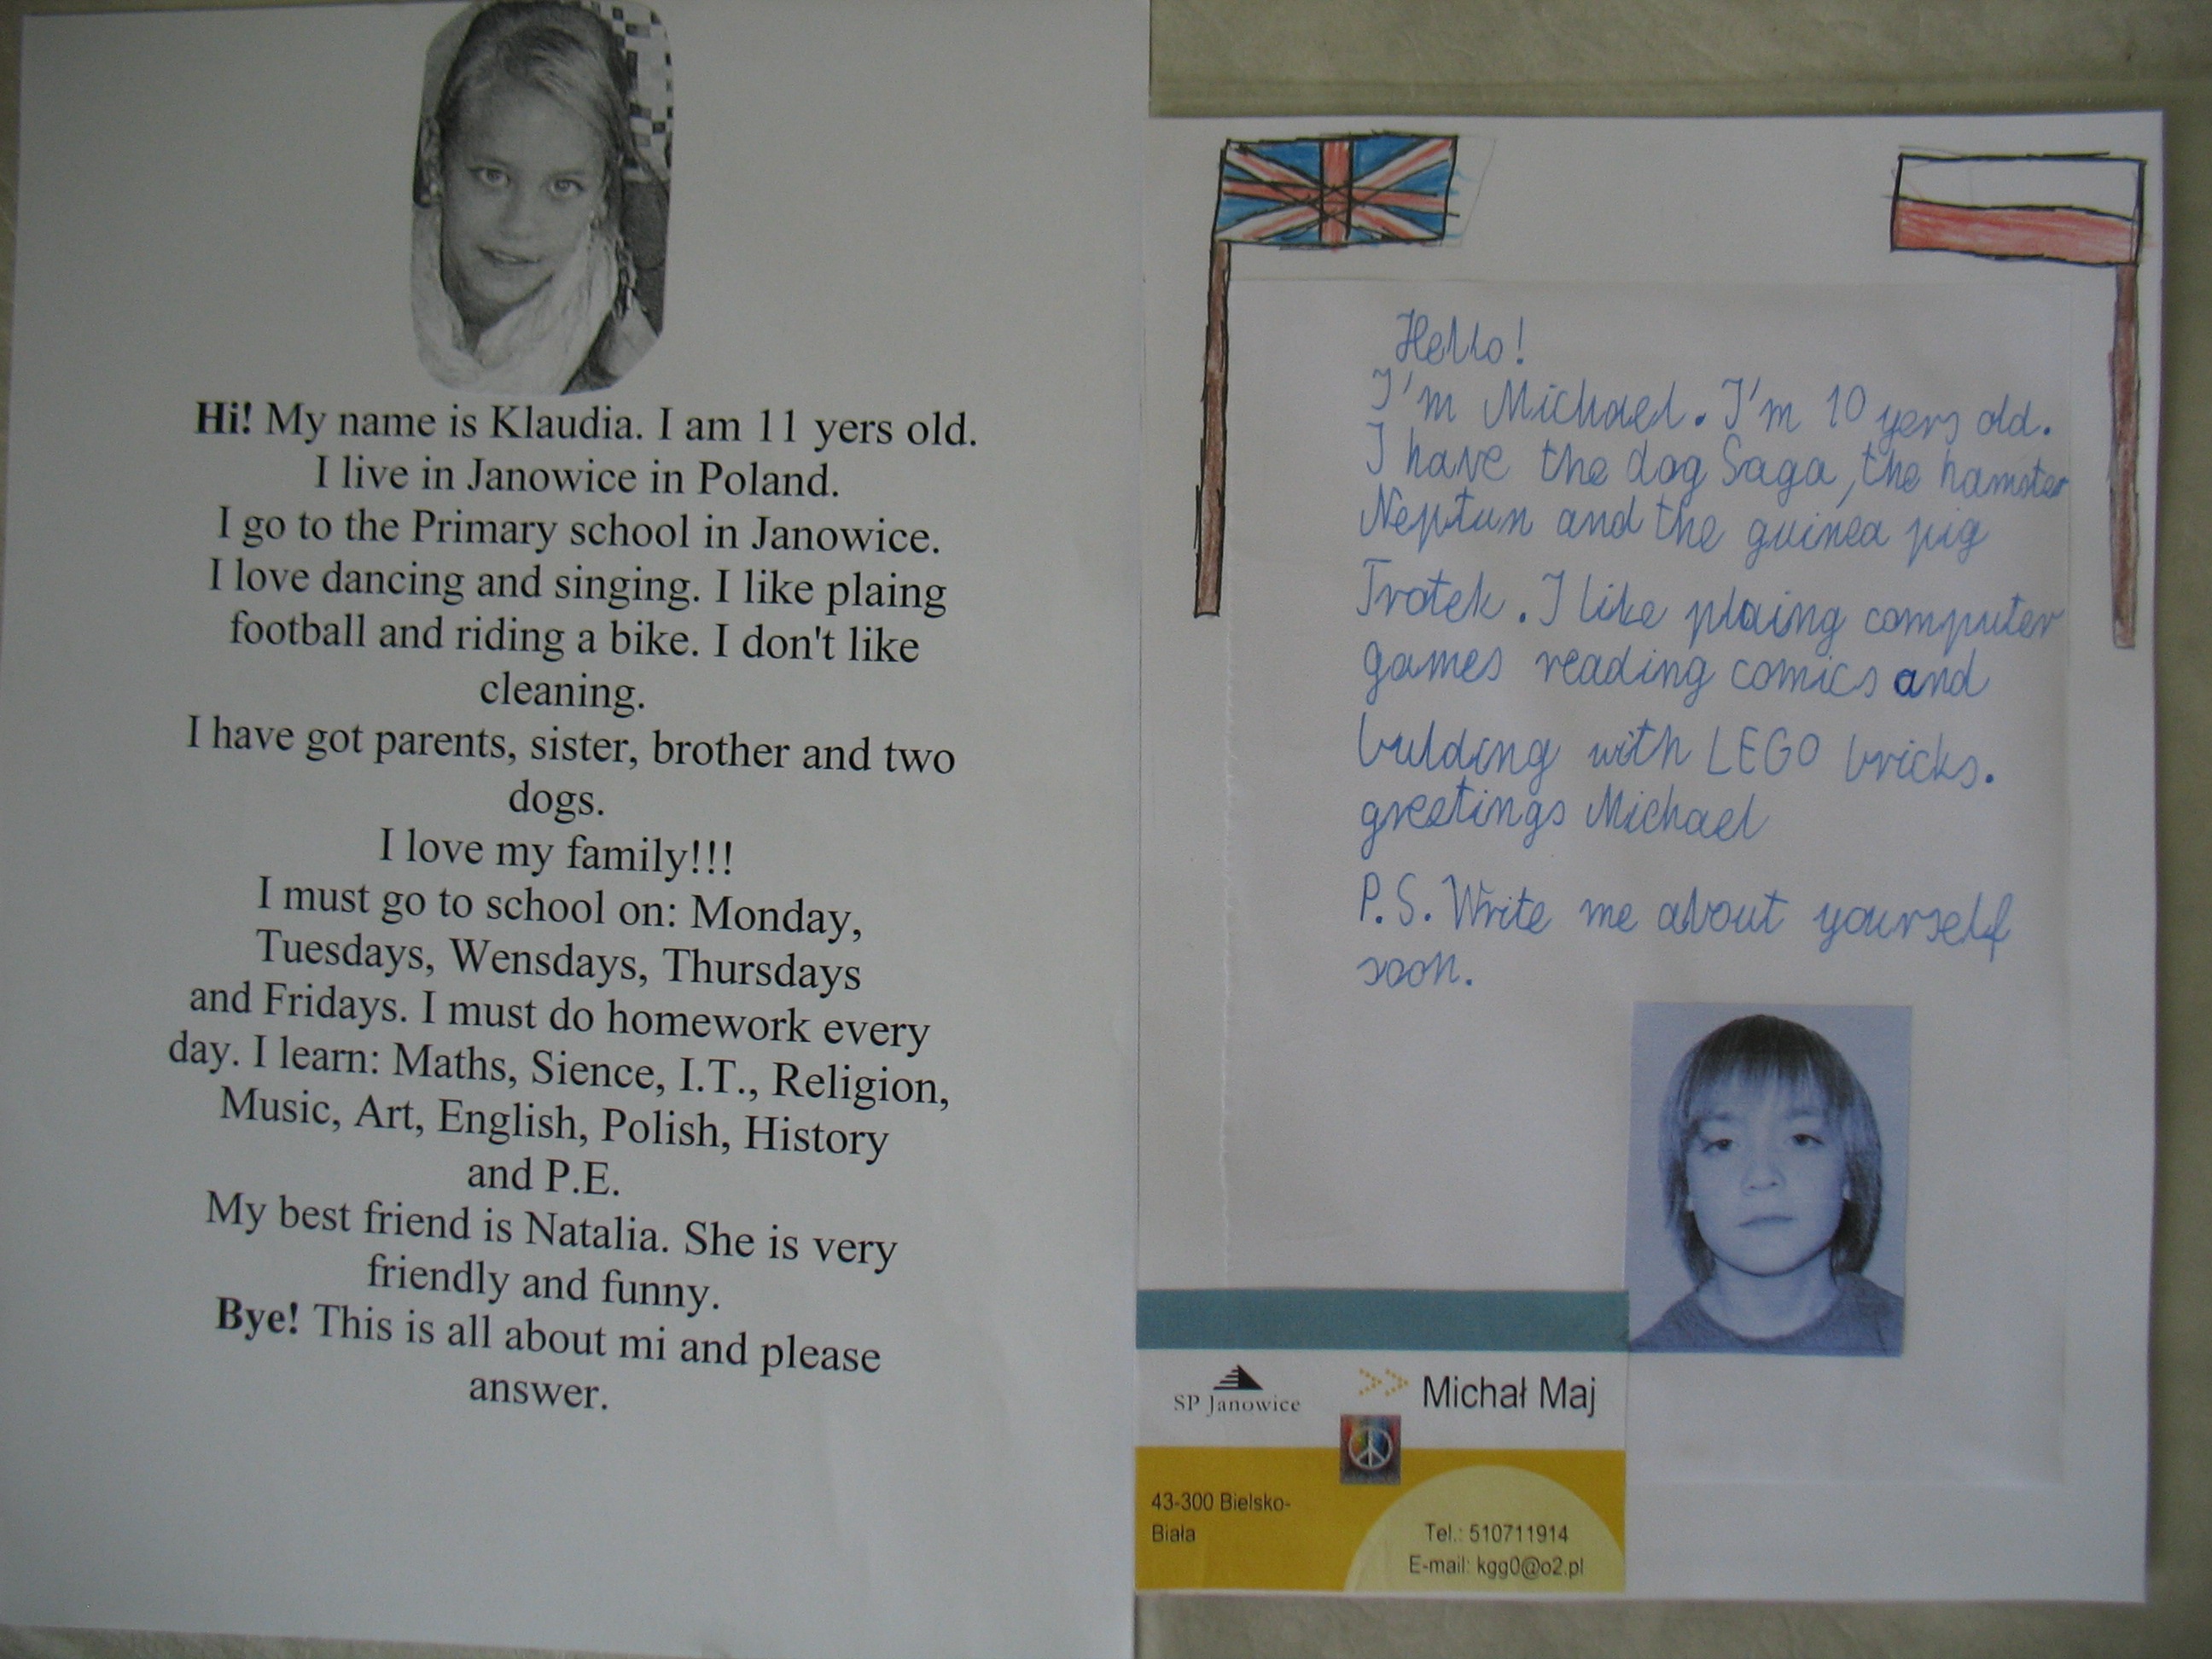 Hi! My name is Klaudia. I am 11 yers old.
I live in Janowice in Poland.
I go to the Primary school in Janowice.
I love dancing and singing. I like plaing
football and riding a bike. I don't like
cleaning.
I have got parents, sister, brother and two
dogs.
I love my family!!!
I must go to school on: Monday,
Tuesdays, Wensdays, Thursdays
and Fridays. I must do homework every
day. I learn: Maths, Sience, I.T., Religion,
Music, Art, English, Polish, History
and P.E.
My best friend is Natalia. She is very
friendly and funny.
Bye! This is all about mi and please
answer.
Hello!
I'm Michael. I'm 10 yers old.
I have the dog Saga, the hamster
Neptun and the guinea pig
Trotek. I like plaing computer
games reading comics and
bulding with LEGO bricks.
greetings Michael
P.S. Write me about yourself
soon.
SP Janowice
>> Michał Maj
43-300 Bielsko-
Biała
Tel.: 510711914
E-mail: kgg0@o2.pl